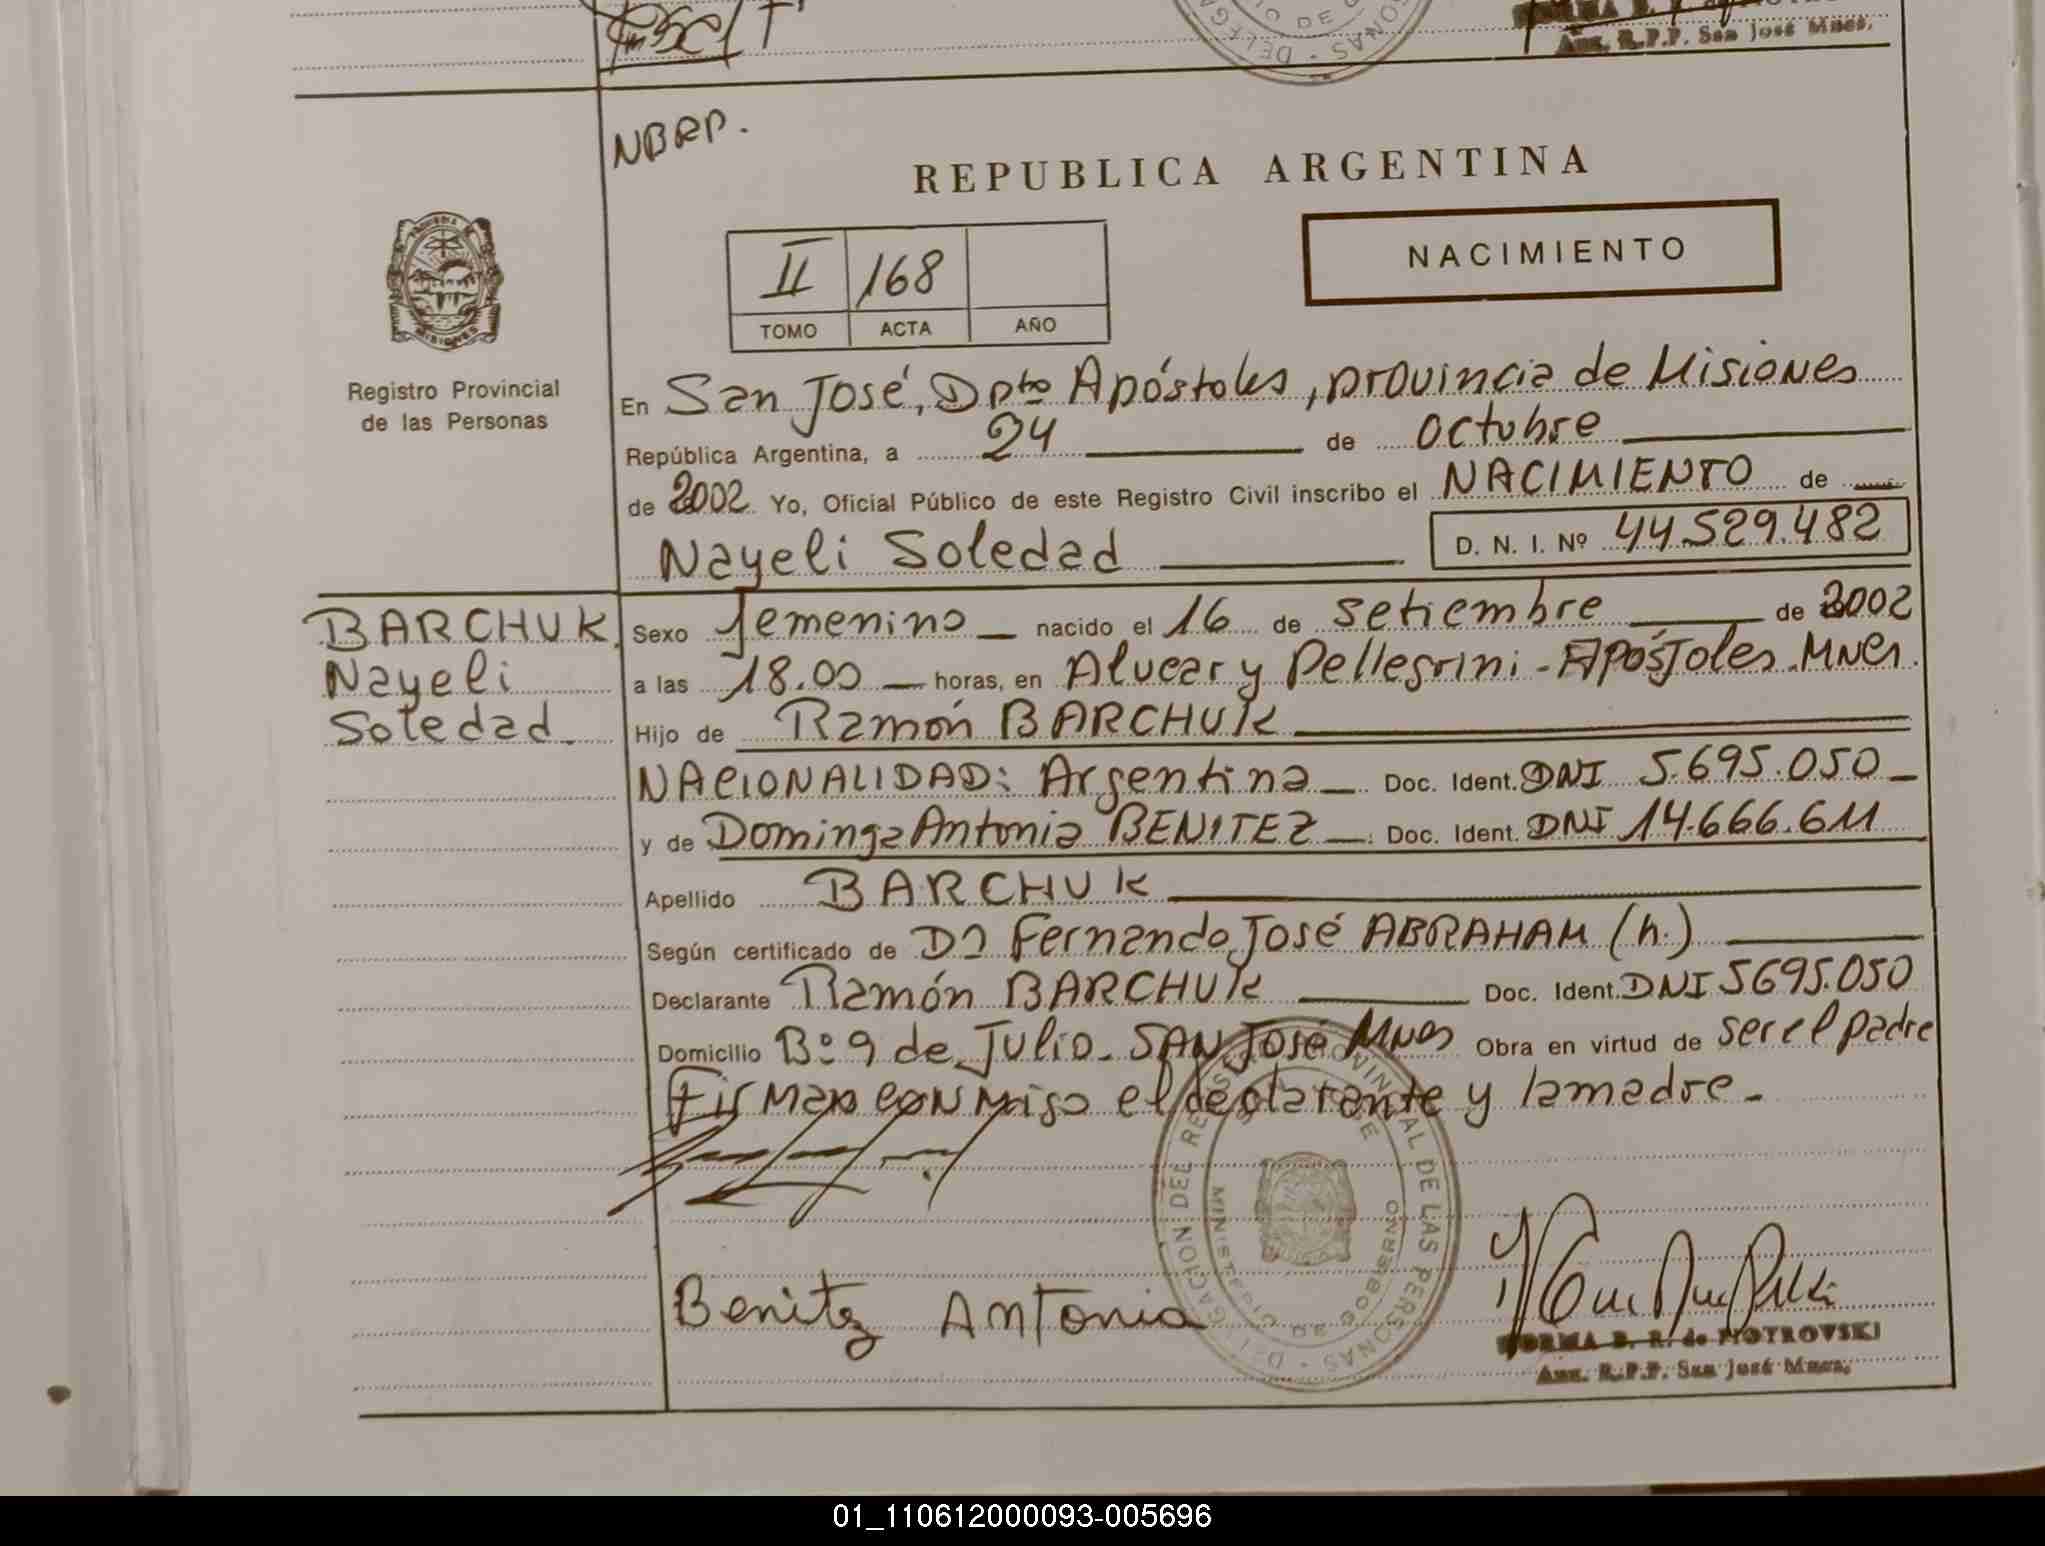 Aux. R.P.P. San José Mnes.
NBRP.
REPUBLICA ARGENTINA
II 168
TOMO ACTA AÑO
NACIMIENTO
Registro Provincial
de las Personas
En San José, Dpto Apóstoles, provincia de Misiones
República Argentina, a 24 de octubre
de 2002 Yo, Oficial Público de este Registro Civil inscribo el NACIMIENTO de
Nayeli Soledad D. N. I. Nº 44.529.482
BARCHUK
Nayeli
Soledad
Sexo femenino nacido el 16 de setiembre de 2002
a las 18.00 horas, en Alvear y Pellegrini - Apóstoles. Mnes.
Hijo de Ramón BARCHUK
NACIONALIDAD: Argentina Doc. Ident. DNI 5.695.050
y de Dominga Antonia BENITEZ Doc. Ident. DNI 14.666.611
Apellido BARCHUK
Según certificado de Dr Fernando José ABRAHAM (h.)
Declarante Ramón BARCHUK Doc. Ident. DNI 5695.050
Domicilio Bº 9 de Julio - SAN José Mnes Obra en virtud de ser el padre
Firman conmigo el declarante y la madre.
DELEGACION DEL REGISTRO PROVINCIAL DE LAS PERSONAS
MINISTERIO DE GOBIERNO
Benitez Antonia
NORMA B. R. de PIOTROVSKI
Aux. R.P.P. San José Mnes.
01_110612000093-005696